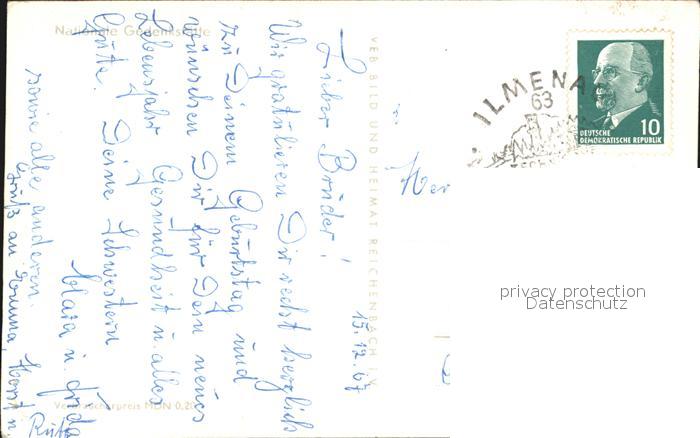 Nationale Gedenkstätte
15.12.67
Lieber Brüder!
Wir gratulieren Dir recht herzlich
zu Deinem Geburtstag und
wünschen Dir für Dein neues
Lebensjahr Gesundheit u. alles
Gute. Deine Schwestern
Klara u. Frida
sowie alle anderen.
Gruß an Emma, Horst u
Ruth
VEB BILD UND HEIMAT REICHENBACH I. V.
Verbraucherpreis MDN 0,20
Her
ILMENAU
63
DEUTSCHE
DEMOKRATISCHE REPUBLIK
10
privacy protection
Datenschutz